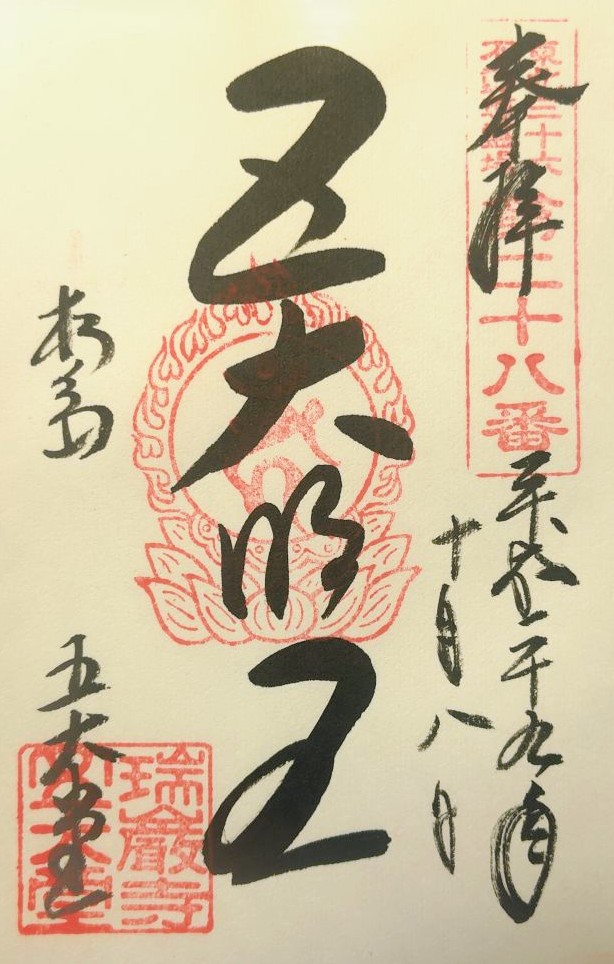 奉拝
二十八番
平成二十九年
十月八日
五大明王
松島
五大堂
瑞巌寺
五大堂